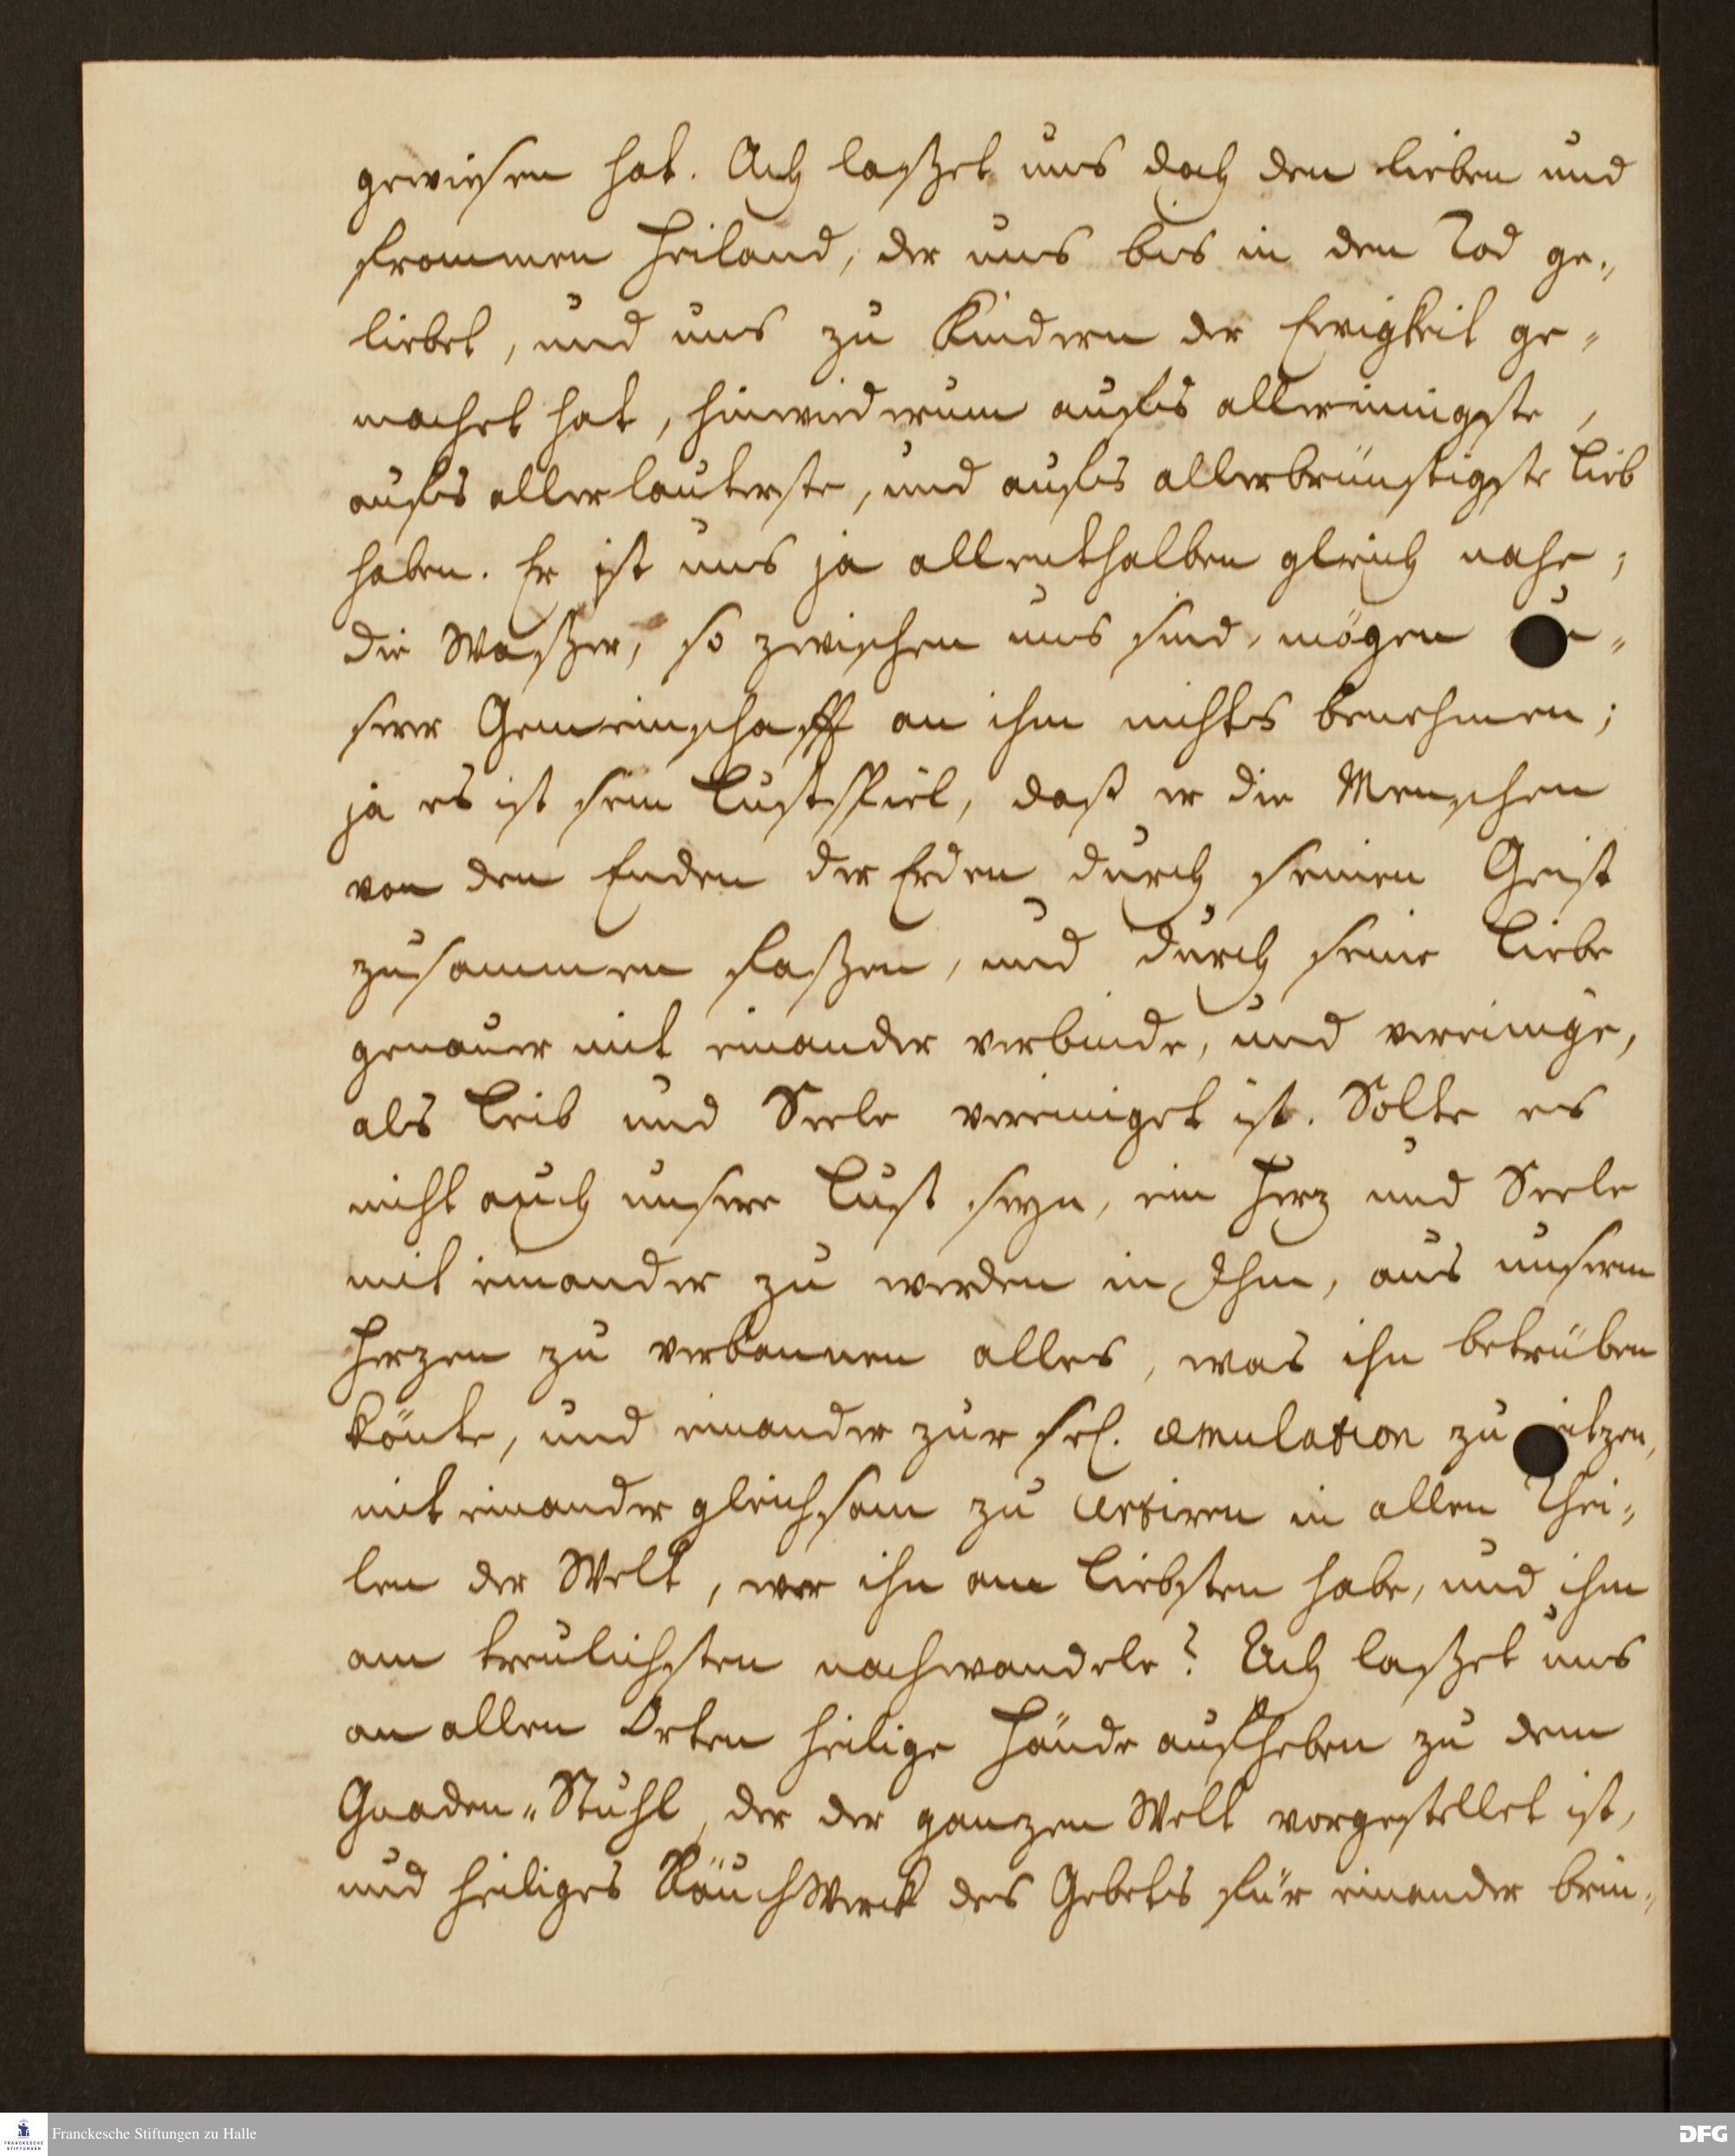 gewiesen hat. Ach laßzet uns doch den lieben und
frommen Heiland, der uns bis in den Tod ge„
liebet, und uns zu Kindern der Ewigkeit ge„
machet hat, hinwiederum aufs allerinnigste,
aufs allerlauterste, und aufs allerbrünstigste lieb
haben. Er ist uns ja allenthalben gleich nahe;
die Waßzer, so zwischen uns sind, mögen un„
serer Gemeinschafft an ihm nichts benehmen;
ja es ist sein Lustspiel, daß er die Menschen
von den Enden der Erden durch seinen Geist
zusammen faßzen, und durch seine Liebe
genauer mit einander verbinde, und vereinige,
als Leib und Seele vereiniget ist. Solte es
nicht auch unsere Lust seyn, ein Herz und Seele
mit einander zu werden in Ihm, aus unserm
Herzen zu verbannen alles, was ihn betrüben
könte, und einander zur sel. æmulation zu reitzen,
mit einander gleichsam zu certiren in allen Thei„
len der Welt, wer ihn am liebsten habe, und ihm
am treulichsten nachwandele? Ach laßzet uns
an allen Orten heilige Hände aufheben zu dem
Gnaden„Stuhl, der der ganzen Welt vorgestellet ist,
und heiliges RäuchWerck des Gebets für einander brin„
Franckesche Stiftungen zu Halle
DFG